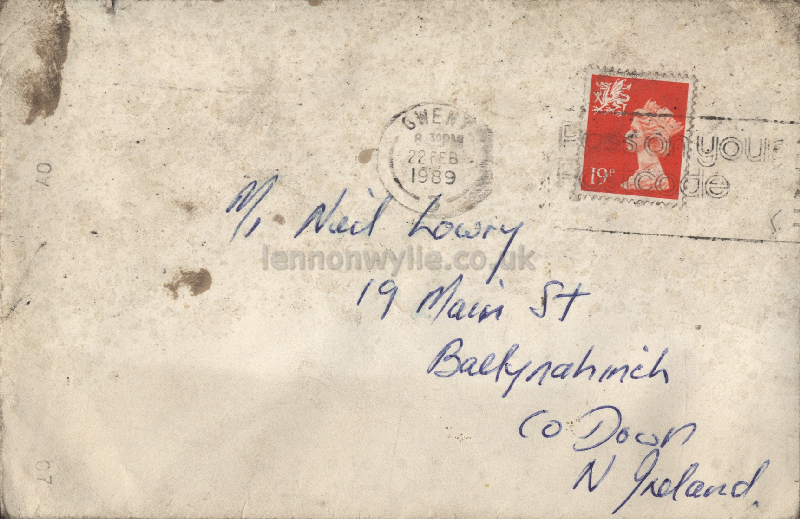 GWENT
8.30PM
22 FEB
1989
19P
Pass on your
Postcode
Mr Neil Lowry
lennonwylie.co.uk
19 Main St
Ballynahinch
Co Down
N Ireland.
AO
07